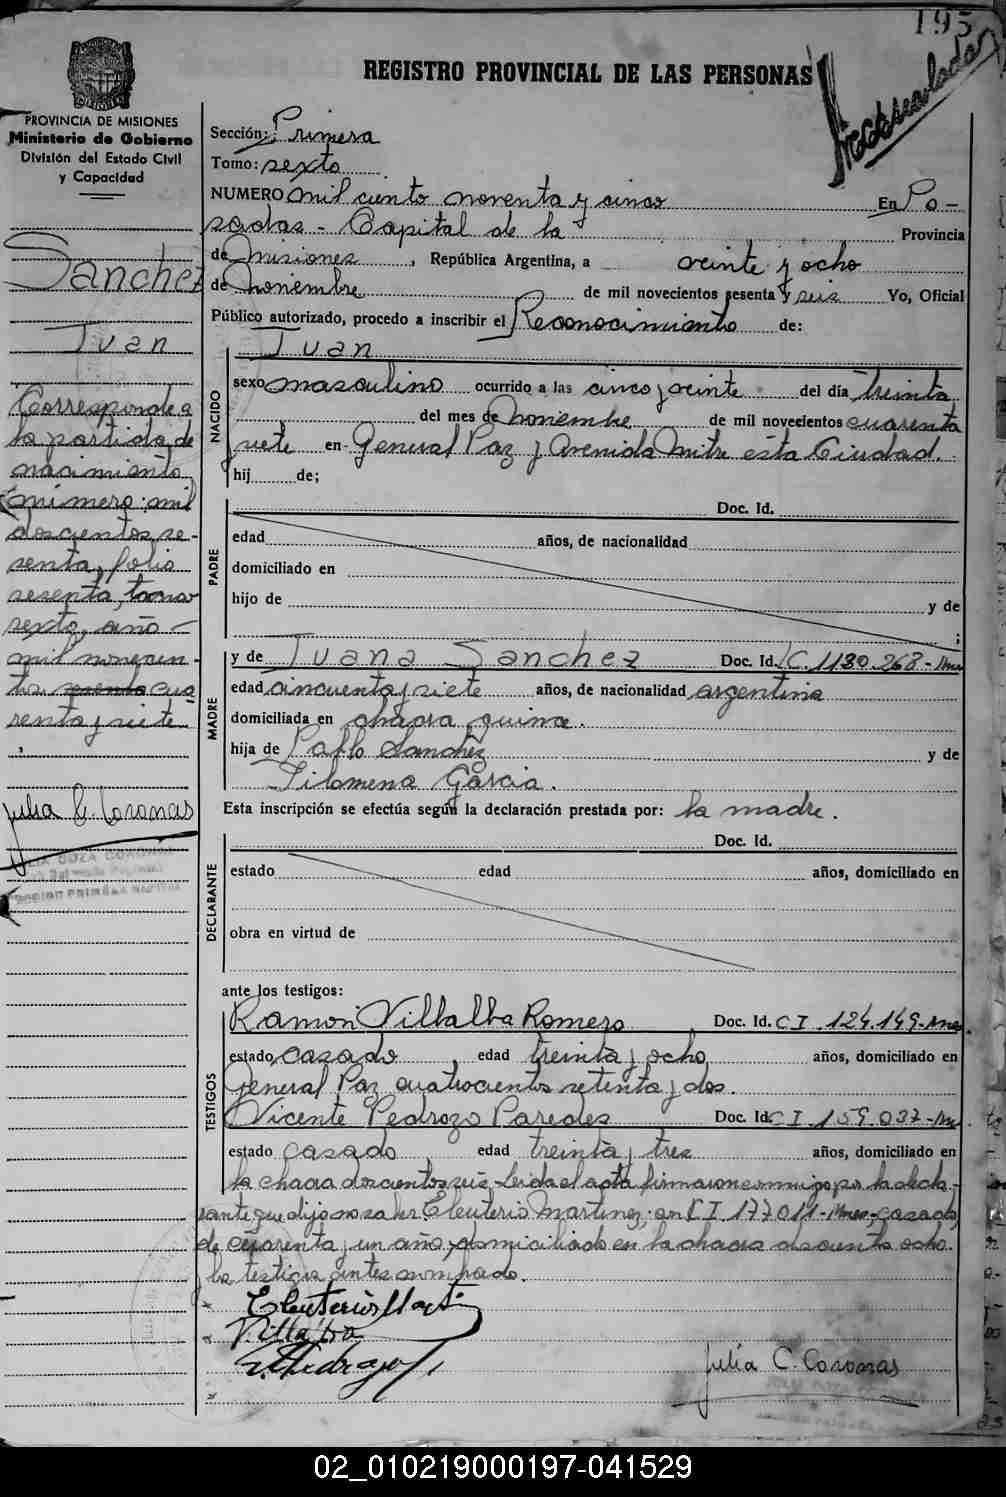 195
Mecanografiada
REGISTRO PROVINCIAL DE LAS PERSONAS
PROVINCIA DE MISIONES
Ministerio de Gobierno
División del Estado Civil
y Capacidad
Sanchez
Juan
Corresponde a
la partida de
nacimiento
número: mil
doscientos se-
senta, folio
sesenta, tomo
sexto, año -
mil novecien-
tos sesenta cua
renta y siete
Julia C. Coronas
Sección: Primera
Tomo: sexto
NUMERO mil ciento noventa y cinco En Po-
sadas - Capital de la Provincia
de Misiones, República Argentina, a veinte y ocho
de Noviembre de mil novecientos sesenta y seis Yo, Oficial
Público autorizado, procedo a inscribir el Reconocimiento de:
Juan
NACIDO
sexo masculino ocurrido a las cinco y veinte del día treinta
del mes de Noviembre de mil novecientos cuarenta
y siete en General Paz y Avenida Mitre ésta Ciudad.
hij de;
PADRE
Doc. Id.
edad años, de nacionalidad
domiciliado en
hijo de y de
;
MADRE
y de Juana Sanchez Doc. Id. C.1130.268-Mnes
edad cincuenta y siete años, de nacionalidad argentina
domiciliada en chacra quince.
hija de Pablo Sanchez y de
Filomena Garcia.
Esta inscripción se efectúa según la declaración prestada por: la madre.
DECLARANTE
Doc. Id.
estado edad años, domiciliado en
obra en virtud de
ante los testigos:
TESTIGOS
Ramon Villalba Romero Doc. Id. C I. 124.149-Mnes.
estado casado edad treinta y ocho años, domiciliado en
General Paz cuatrocientos setenta y dos.
Vicente Pedrozo Paredes Doc. Id. C I. 159.037-Mn
estado casado edad treinta y tres años, domiciliado en
la chacra doscientos seis - Leída el acta firmaron conmigo por la decla-
rante que dijo no saber Eleuterio Martinez, con C I 177011-Mnes, casado,
de cuarenta y un año, domiciliado en la chacra doscientos ocho.
los testigos antes nombrado.
Eleuterio Mart
Villalba
Julia C. Coronas
02_010219000197-041529